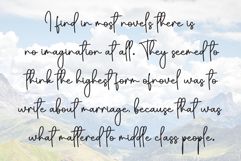 I find in most novels there is
no imagination at all. They seemed to
think the highest form of novel was to
write about marriage, because that was
what mattered to middle class people.